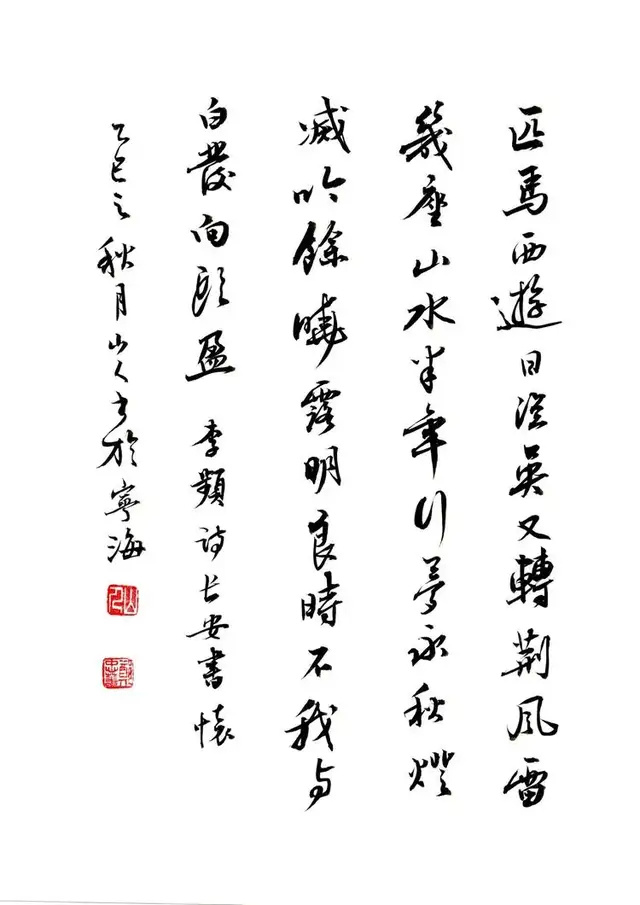 匹馬西遊日從吳又轉荆風雷
幾座山水半年行夢永秋燈
滅吟餘曉露明良時不我與
白發向頭盈 李頻詩長安書懷
乙巳之秋月山人書於寧海
山人